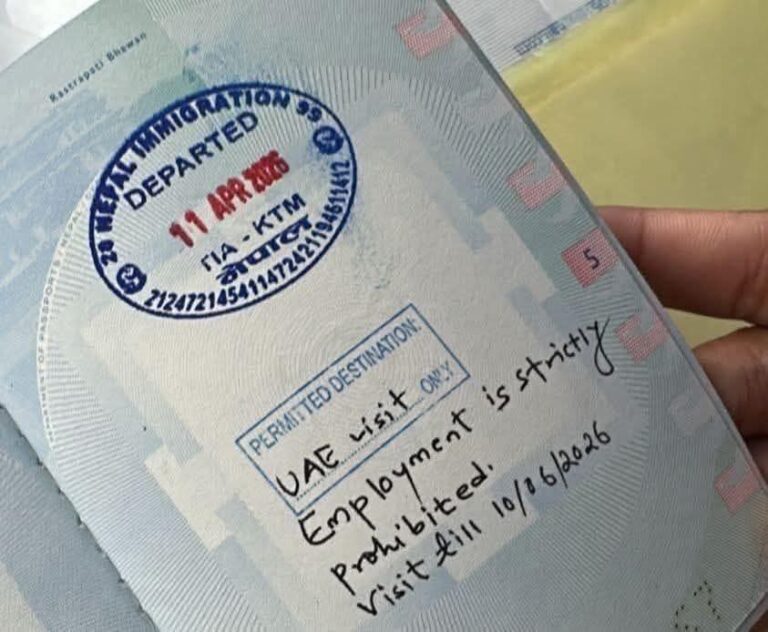 Rastrapati Bhawan
20 NEPAL IMMIGRATION 99
DEPARTED
11 APR 2026
TIA - KTM
नेपाल
PERMITTED DESTINATION:
UAE visit ONLY
Employment is strictly
prohibited.
Visit till 10/06/2026
5